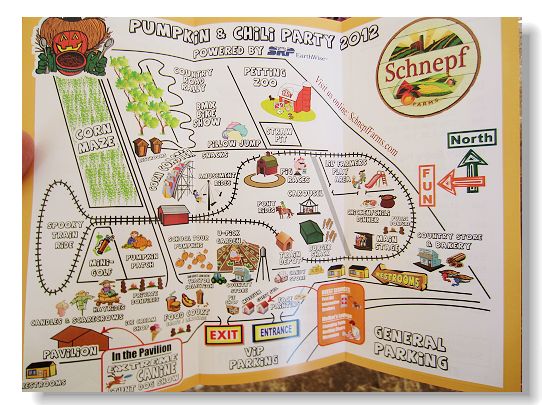 PUMPKIN & CHILI PARTY 2012
POWERED BY SRP EarthWise
Visit us online SchnepfFarms.com
Schnepf
FARMS
North
FUN
COUNTRY
ROAD
RALLY
PETTING
ZOO
BMX
BIKE
SHOW
PILLOW JUMP
STRAW
PIT
CORN
MAZE
RESTROOMS
SNACKS
AMUSEMENT
RIDES
PIG
RACES
LIL' FARMERS
PLAY
AREA
CAROUSEL
PONY
RIDES
CHICKEN/CHILI
DINNER
MAIN
STAGE
COUNTRY STORE
& BAKERY
SPOOKY
TRAIN
RIDE
MINI-
GOLF
PUMPKIN
PATCH
SCHOOL TOUR
PUMPKINS
U-PICK
GARDEN
TRAIN
DEPOT
BURGER
SHACK
CANDY
STORE
RESTROOMS
HAYRIDES
CANDLES & SCARECROWS
ICE CREAM
SHOP
FOOD COURT
COUNTRY
STORE
FACE PAINTING
EXIT
ENTRANCE
VIP
PARKING
GENERAL
PARKING
PAVILION
RESTROOMS
In the Pavilion
EXTREME
CANINE
STUNT DOG SHOW